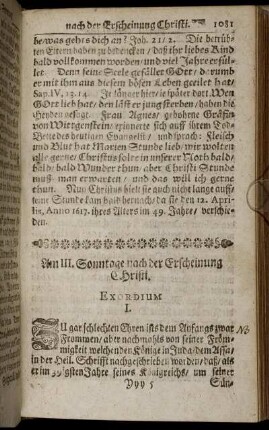 nach der Erscheinung Christi. 1081
be/was gehts dich an? Joh. 21/2. Die betrüb-
ten Eltern haben zu bedencken/ daß ihr liebes Kind
bald vollkommen worden/und viel Jahre erfül-
let. Denn seine Seele gefället GOtt/ darumb
er mit ihm aus diesem bösen Leben geeilet hat/
Sap. IV, 13. 14. Je länger hier/ je später dort. Wen
GOtt lieb hat/ den läst er jung sterben/ haben die
Heyden gesagt. Frau Agnes/ gebohrne Gräfin
von Wittgenstein/ erinnerte sich auff ihrem Tod-
Bette des heutigen Evangelii/ und sprach: Fleisch
und Blut hat Marien Stunde lieb/ wir wolten
gerne/ Christus solte in unserer Noth bald/
bald/ bald Wunder thun/ aber Christi Stunde
muß man erwarten/ und das will ich gerne
thun. Nun Christus hielt sie auch nicht lange auff/
seine Stunde kam bald hernach/ da sie den 12. Apri-
lis, Anno 1617. ihres Alters im 49. Jahre/ verschie-
den.
Am III. Sonntage nach der Erscheinung
CHristi.
EXORDIUM
I.
ZU gar schlechten Ehren ists dem Anfangs zwar
Frommen/ aber nachmahls von seiner Fröm-
migkeit weichenden Könige in Juda/ dem Assa/
in der Heil. Schrifft nachgeschrieben worden/ daß/ als
er im 39sten Jahre seines Königreichs/ um seiner
Yyy 5 Sün-